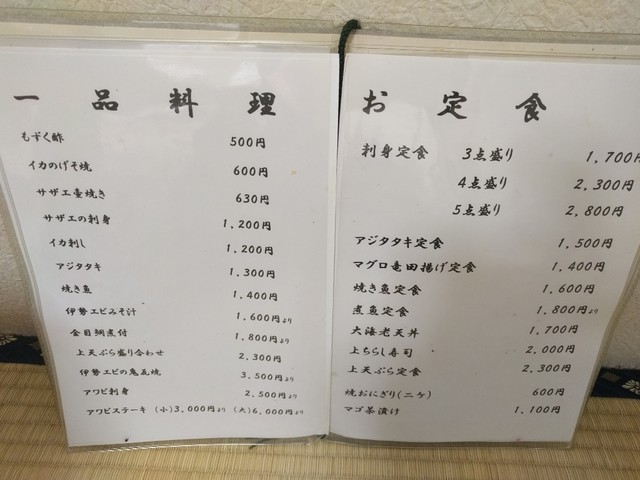 一品料理
もずく酢 500円
イカのげそ焼 600円
サザエ壷焼き 630円
サザエの刺身 1,200円
イカ刺し 1,200円
アジタタキ 1,300円
焼き魚 1,400円
伊勢エビみそ汁 1,600円より
金目鯛煮付 1,800円より
上天ぷら盛り合わせ 2,300円
伊勢エビの鬼瓦焼 3,500円より
アワビ刺身 2,500円より
アワビステーキ (小)3,000円より (大)6,000円より
お定食
刺身定食 3点盛り 1,700円
4点盛り 2,300円
5点盛り 2,800円
アジタタキ定食 1,500円
マグロ竜田揚げ定食 1,400円
焼き魚定食 1,600円
煮魚定食 1,800円より
大海老天丼 1,700円
上ちらし寿司 2,000円
上天ぷら定食 2,300円
焼おにぎり(二ケ) 600円
マゴ茶漬け 1,100円